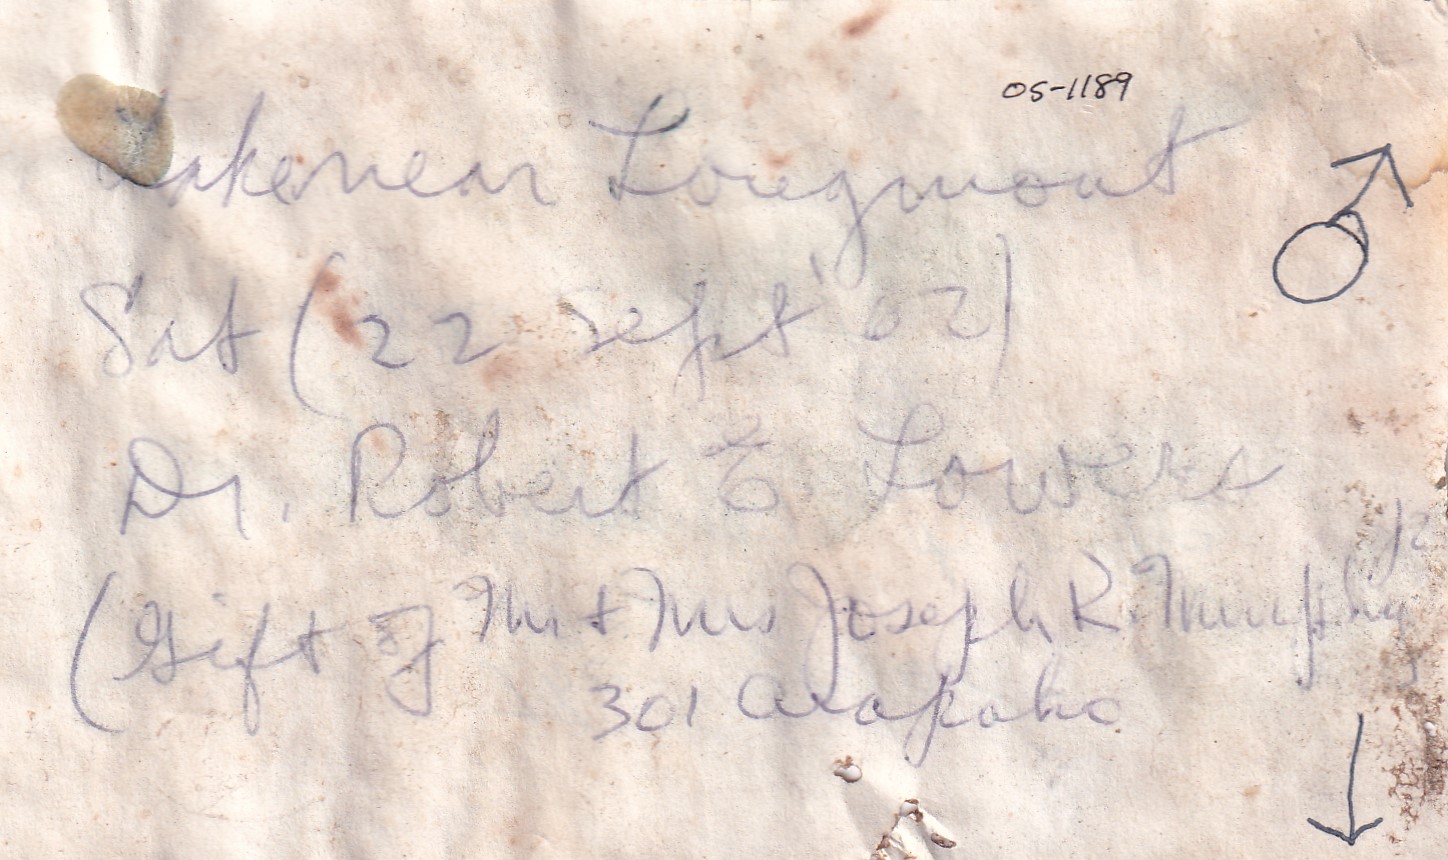 OS-1189
Lake near Longmont
Sat (22 Sept '02)
Dr. Robert E Lowers
(Gift of Mr + Mrs Joseph R. Murphy
301 Arapaho